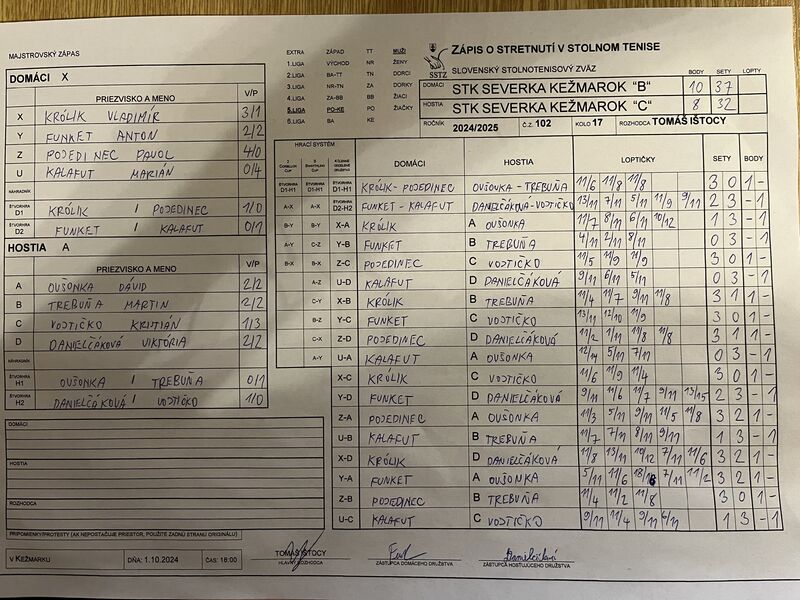 MAJSTROVSKÝ ZÁPAS
DOMÁCI X
PRIEZVISKO A MENO V/P
X KRÓLIK VLADIMÍR 3/1
Y FUNKET ANTON 2/2
Z POJEDINEC PAVOL 4/0
U KALAFUT MARIÁN 0/4
NÁHRADNÍK
ŠTVORHRA D1 KRÓLIK / POJEDINEC 1/0
ŠTVORHRA D2 FUNKET / KALAFUT 0/1
HOSTIA A
PRIEZVISKO A MENO V/P
A OUŠONKA DÁVID 2/2
B TREBUŇA MARTIN 2/2
C VOJTIČKO KRISTIÁN 1/3
D DANIELČÁKOVÁ VIKTÓRIA 2/2
NÁHRADNÍK
ŠTVORHRA H1 OUŠONKA / TREBUŇA 0/1
ŠTVORHRA H2 DANIELČÁKOVÁ / VOJTIČKO 1/0
DOMÁCI
HOSTIA
ROZHODCA
PRIPOMIENKY/PROTEST (AK NEPOSTAČUJE PRIESTOR, POUŽITE ZADNÚ STRANU ORIGINÁLU)
V KEŽMARKU DŇA: 1.10.2024 ČAS: 18:00
EXTRA ZÁPAD TT MUŽI
1.LIGA VÝCHOD NR ŽENY
2.LIGA BA-TT TN DORCI
3.LIGA NR-TN ZA DORKY
4.LIGA ZA-BB BB ŽIACI
5.LIGA PO-KE PO ŽIAČKY
6.LIGA BA KE
SSTZ
ZÁPIS O STRETNUTÍ V STOLNOM TENISE
SLOVENSKÝ STOLNOTENISOVÝ ZVÄZ
BODY SETY LOPTY
DOMÁCI STK SEVERKA KEŽMAROK "B" 10 37
HOSTIA STK SEVERKA KEŽMAROK "C" 8 32
ROČNÍK 2024/2025 Č.Z. 102 KOLO 17 ROZHODCA TOMÁŠ IŠTOCY
HRACÍ SYSTÉM
DOMÁCI HOSTIA LOPTIČKY SETY BODY
ŠTVORHRA D1-H1 ŠTVORHRA D1-H1 ŠTVORHRA D1-H1 KRÓLIK - POJEDINEC OUŠONKA - TREBUŇA 11/6 11/8 11/8 3 0 1 -
A-X A-X ŠTVORHRA D2-H2 FUNKET - KALAFUT DANIELČÁKOVÁ - VOJTIČKO 13/11 7/11 5/11 11/9 9/11 2 3 - 1
B-Y B-Y X-A KRÓLIK A OUŠONKA 11/7 8/11 6/11 10/12 1 3 - 1
A-Y C-Z Y-B FUNKET B TREBUŇA 4/11 2/11 8/11 0 3 - 1
B-X B-X Z-C POJEDINEC C VOJTIČKO 11/5 11/9 11/9 3 0 1 -
A-Z U-D KALAFUT D DANIELČÁKOVÁ 9/11 6/11 5/11 0 3 - 1
C-Y X-B KRÓLIK B TREBUŇA 11/4 11/7 9/11 11/8 3 1 1 -
B-Z Y-C FUNKET C VOJTIČKO 13/11 12/10 11/9 3 0 1 -
C-X Z-D POJEDINEC D DANIELČÁKOVÁ 11/2 1/11 11/8 11/8 3 1 1 -
A-Y U-A KALAFUT A OUŠONKA 12/14 5/11 7/11 0 3 - 1
X-C KRÓLIK C VOJTIČKO 11/6 11/9 11/4 3 0 1 -
Y-D FUNKET D DANIELČÁKOVÁ 9/11 11/6 11/7 9/11 13/15 2 3 - 1
Z-A POJEDINEC A OUŠONKA 11/3 5/11 9/11 11/5 11/8 3 2 1 -
U-B KALAFUT B TREBUŇA 11/7 7/11 8/11 9/11 1 3 - 1
X-D KRÓLIK D DANIELČÁKOVÁ 11/8 13/11 10/12 7/11 11/6 3 2 1 -
Y-A FUNKET A OUŠONKA 5/11 11/6 7/11 11/2 3 2 1 -
Z-B POJEDINEC B TREBUŇA 11/4 11/2 11/8 3 0 1 -
U-C KALAFUT C VOJTIČKO 9/11 11/4 9/11 6/11 1 3 - 1
TOMÁŠ IŠTOCY
HLAVNÝ ROZHODCA ZÁSTUPCA DOMÁCEHO DRUŽSTVA ZÁSTUPCA HOSŤUJÚCEHO DRUŽSTVA